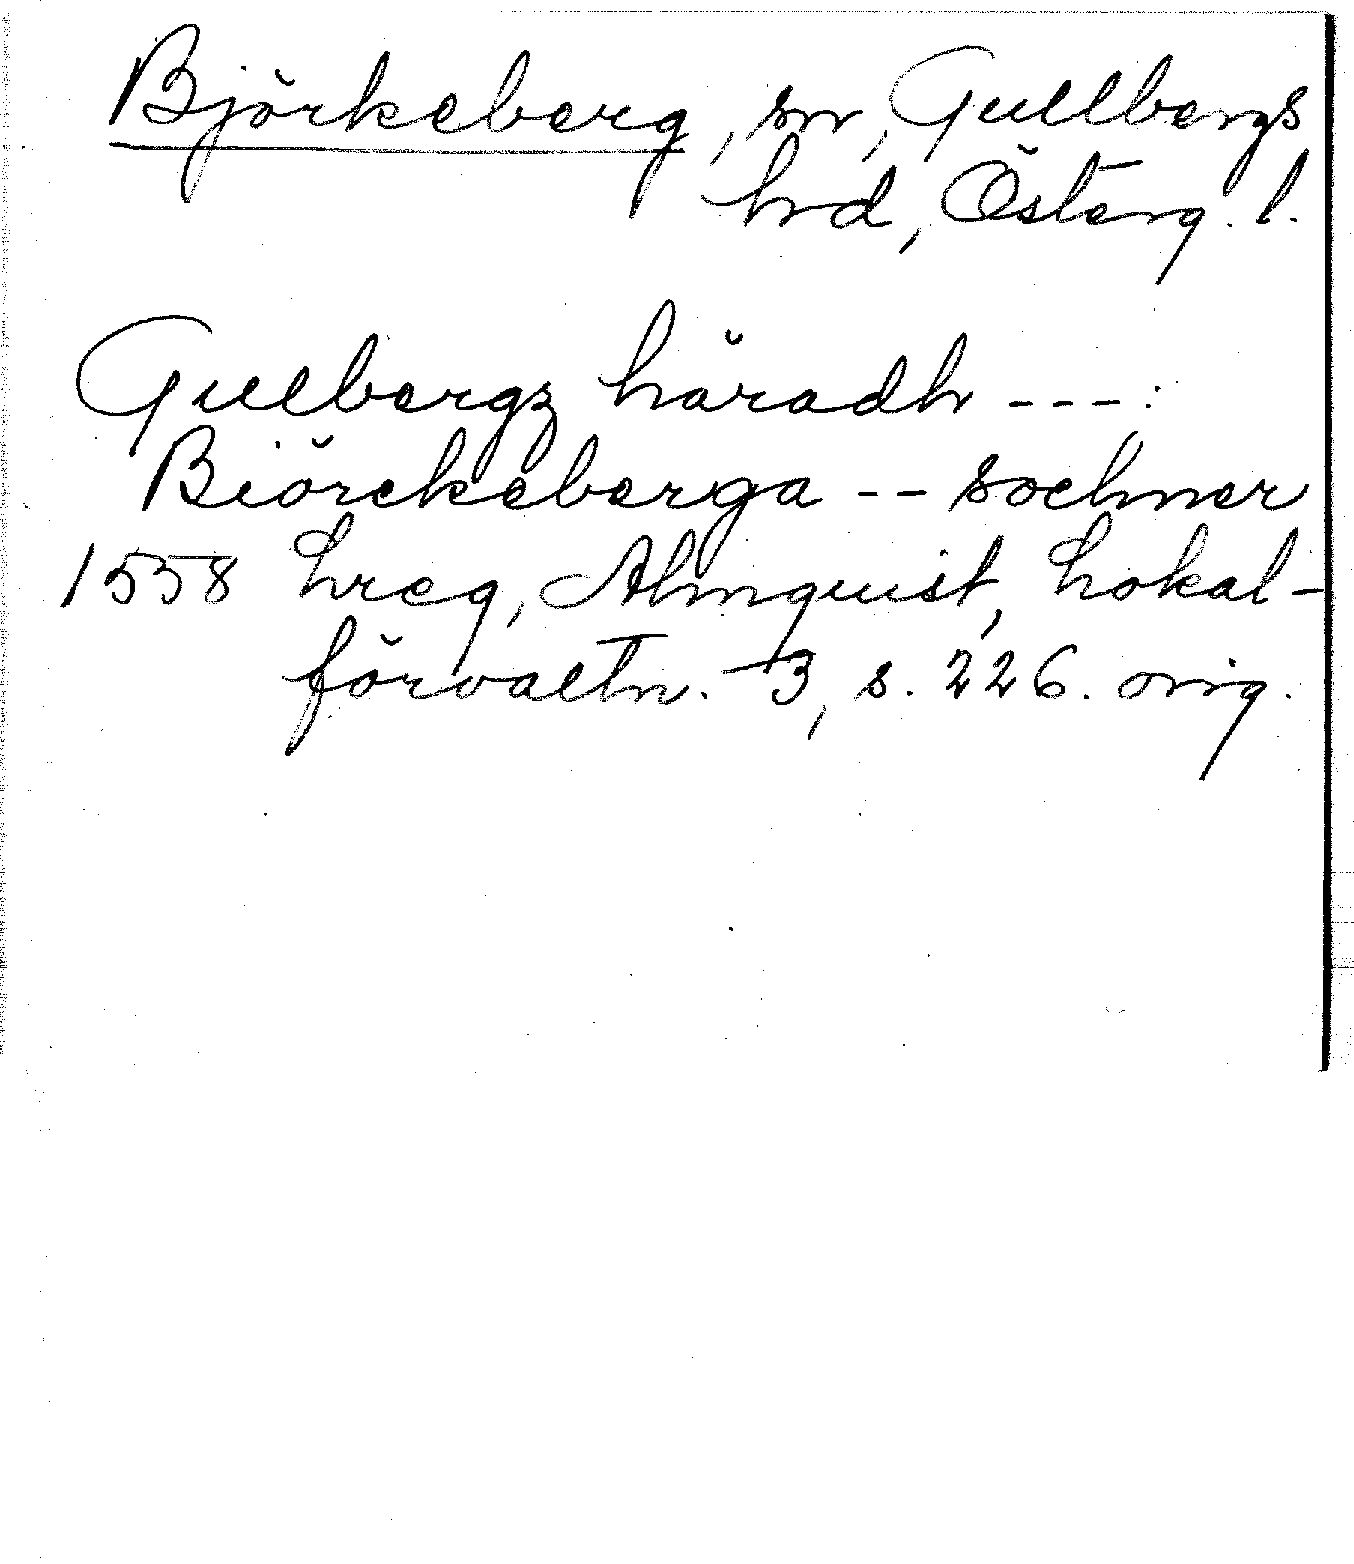 Björkeberg, sn, Gullbergs
hrd, Österg. l.
Gulbergz häradh ---:
Biörckeberga -- sochner
1558 Lreg, Almquist, Lokal-
förvaltn. 3, s. 226. orig.